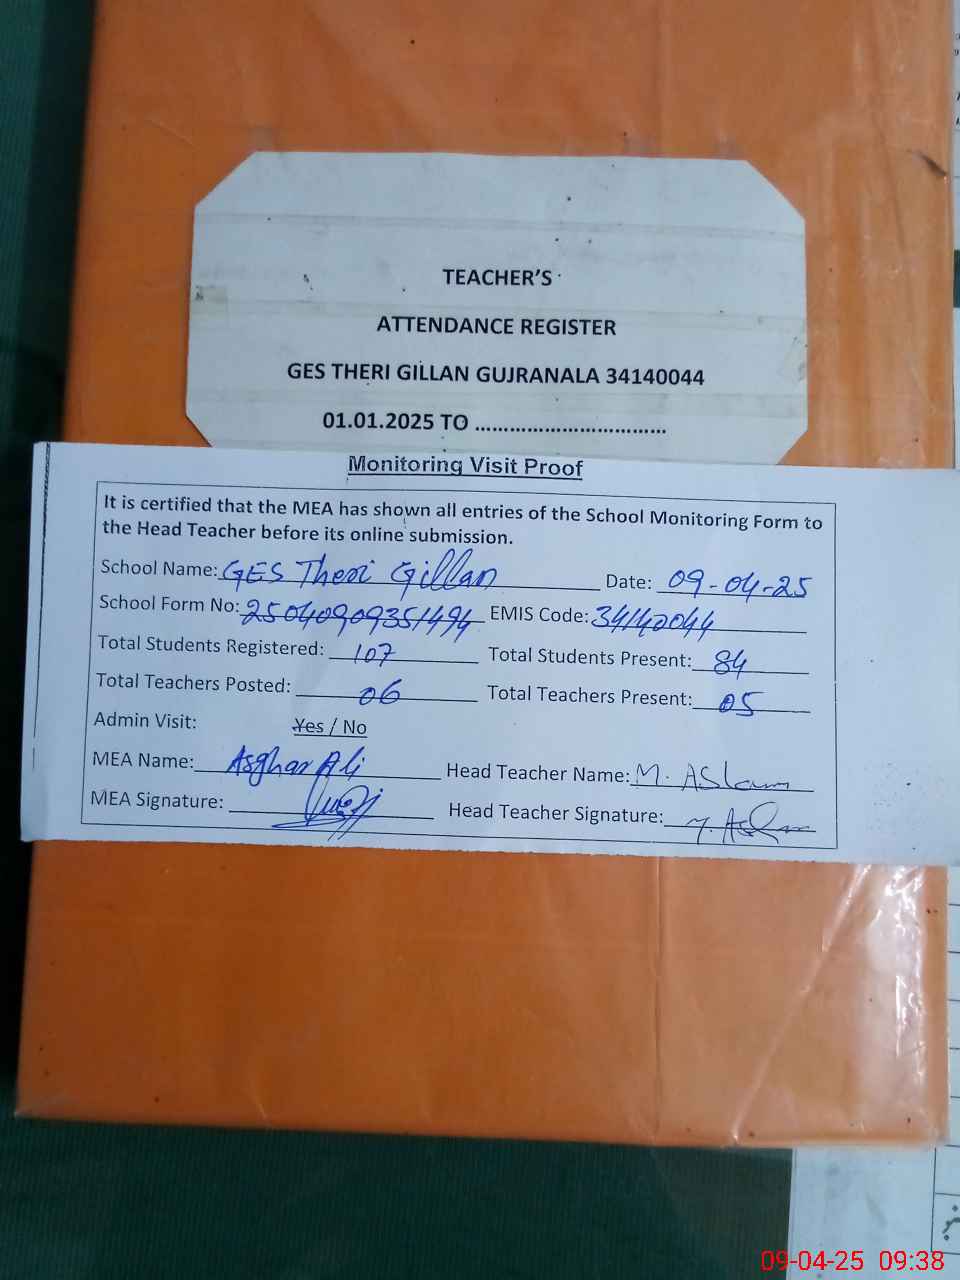 TEACHER'S
ATTENDANCE REGISTER
GES THERI GILLAN GUJRANALA 34140044
01.01.2025 TO ....................................
Monitoring Visit Proof
It is certified that the MEA has shown all entries of the School Monitoring Form to
the Head Teacher before its online submission.
School Name: GES Theri Gillan Date: 09-04-25
School Form No: 25040909351494 EMIS Code: 34140044
Total Students Registered: 107 Total Students Present: 84
Total Teachers Posted: 06 Total Teachers Present: 05
Admin Visit: Yes / No
MEA Name: Asghar Ali Head Teacher Name: M. ASlam
MEA Signature: Head Teacher Signature: M. Aslam
09-04-25 09:38